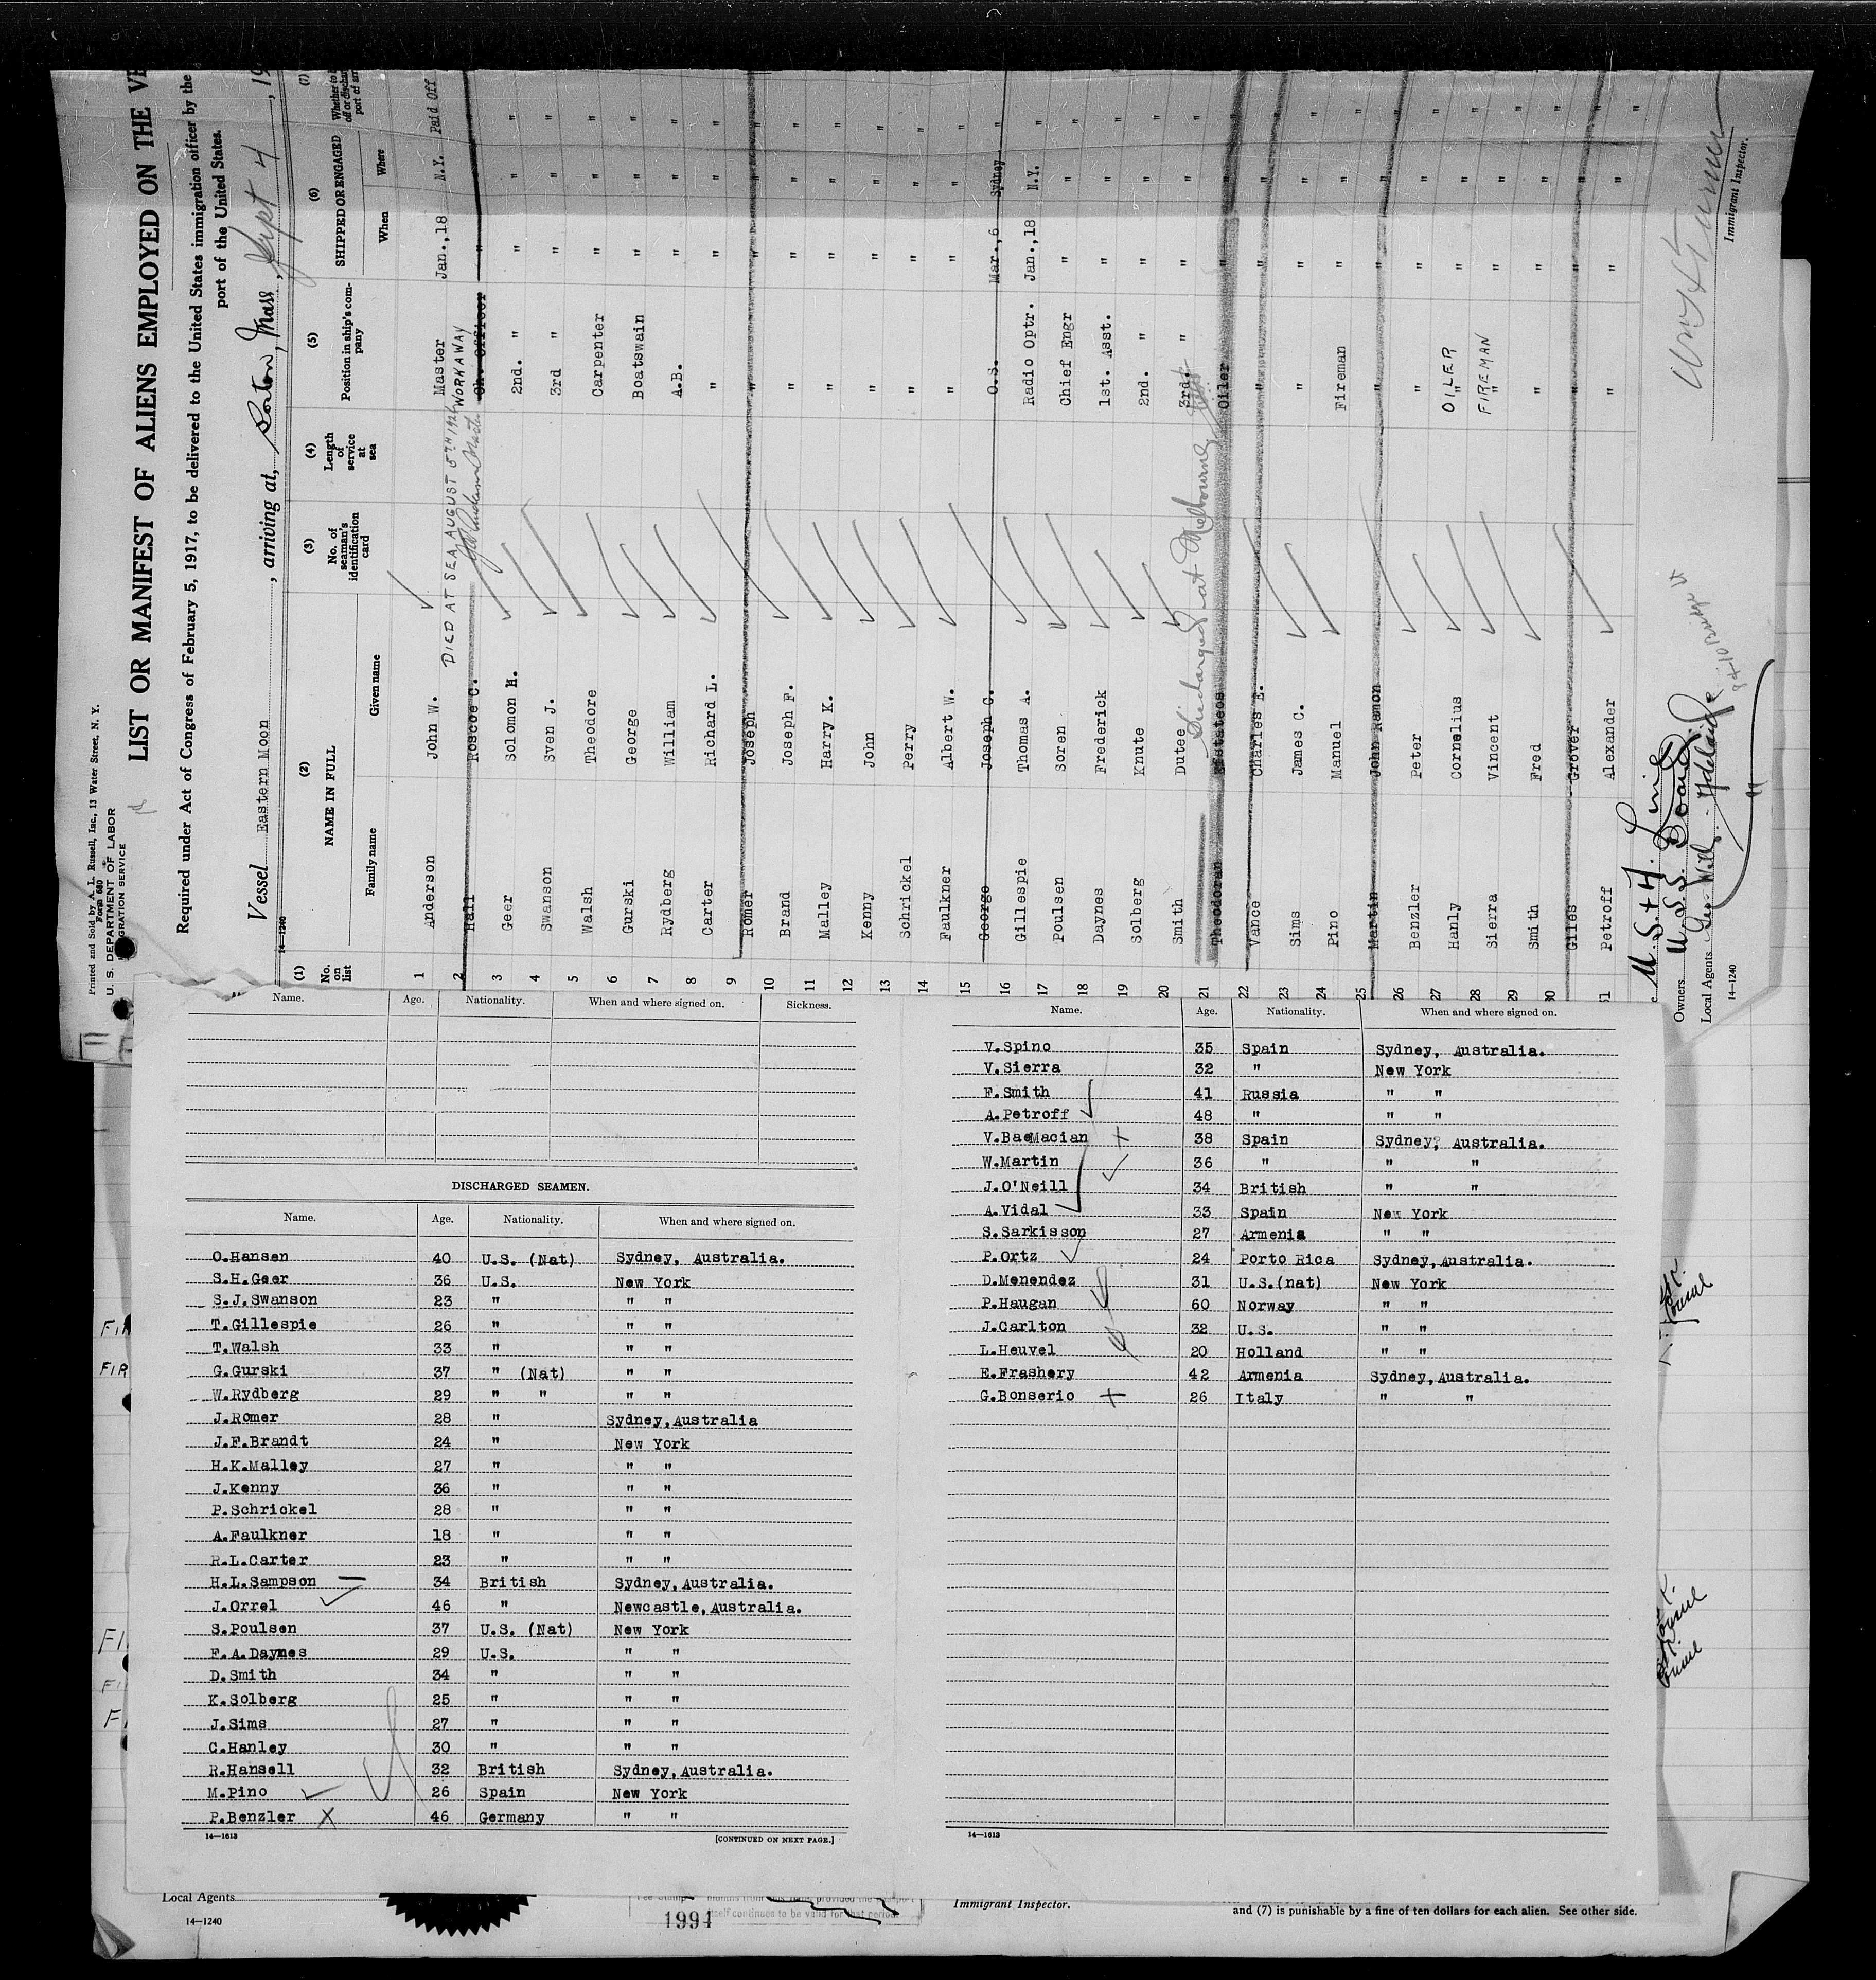 Printed and Sold by A. L. Russell, Inc., 13 Water Street, N. Y.
Form 680
U. S. DEPARTMENT OF LABOR
GRATION SERVICE
LIST OR MANIFEST OF ALIENS EMPLOYED ON THE VE
Required under Act of Congress of February 5, 1917, to be delivered to the United States immigration officer by the
port of the United States.
Vessel Eastern Moon, arriving at, Boston, Mass, Sept 4, 19
14—1240
(1) (2) (3) (4) (5) (6) (7)
No. on list NAME IN FULL No. of seaman's identification card Length of service at sea Position in ship's company SHIPPED OR ENGAGED
Family name Given name When Where
1 Anderson John W. Master Jan.,18 N.Y. Paid Off
DIED AT SEA AUGUST 5TH 1926 WORKAWAY
2 Hall Roscoe C. Ch. Officer "
3 Geer Solomon H. 2nd. " " " "
4 Swanson Sven J. 3rd " " " "
5 Walsh Theodore Carpenter " " "
6 Gurski George Boatswain " " "
7 Rydberg William A.B. " " "
8 Carter Richard L. " " " "
9 Romer Joseph " " " "
10 Brand Joseph F. " " " "
11 Malley Harry K. " " " "
12 Kenny John " " " "
13 Schrickel Perry " " " "
14 Faulkner Albert W. " " " "
15 George Joseph C. O.S. Mar.,6 Sydney "
16 Gillespie Thomas A. Radio Optr. Jan.,18 N.Y. "
17 Poulsen Soren Chief Engr " " "
18 Daynes Frederick 1st. Asst. " " "
19 Solberg Knute 2nd. " " " "
20 Smith Dutee 3rd. " " " "
Discharged at Melbourne
21 Theodoran Efstateos Oiler " " "
22 Vance Charles E. " " " "
23 Sims James C. " " " "
24 Pino Manuel Fireman " " "
25 Martin John Ramon " " " "
26 Benzler Peter " " " "
27 Hanly Cornelius OILER " " " "
28 Sierra Vincent FIREMAN " " " "
29 Smith Fred " " " "
30 Gilles Grover " " " "
31 Petroff Alexander " " " "
U.S. & A. Line
Owners U.S.S. Board
Local Agents Geo. Wills - Adelaide
14—1240
Immigrant Inspector.
Name. Age. Nationality. When and where signed on. Sickness.
DISCHARGED SEAMEN.
Name. Age. Nationality. When and where signed on.
O.Hansen 40 U.S. (Nat) Sydney, Australia.
S.H.Geer 36 U.S. New York
S.J.Swanson 23 " " "
T.Gillespie 26 " " "
T.Walsh 33 " " "
G.Gurski 37 " (Nat) " "
W.Rydberg 29 " " " "
J.Romer 28 " Sydney,Australia
J.F.Brandt 24 " New York
H.K.Malley 27 " " "
J.Kenny 36 " " "
P.Schrickel 28 " " "
A.Faulkner 18 " " "
R.L.Carter 23 " " "
H.L.Sampson 34 British Sydney,Australia.
J.Orrel 46 " Newcastle,Australia.
S.Poulsen 37 U.S. (Nat) New York
F.A.Daymes 29 U.S. " "
D.Smith 34 " " "
K.Solberg 25 " " "
J.Sims 27 " " "
C.Hanley 30 " " "
R.Hansell 32 British Sydney,Australia.
M.Pino 26 Spain New York
P.Benzler 46 Germany " "
14—1613
[CONTINUED ON NEXT PAGE.]
Name. Age. Nationality. When and where signed on.
V.Spino 35 Spain Sydney, Australia.
V.Sierra 32 " New York
F.Smith 41 Russia " "
A.Petroff 48 " " "
V.BaeMacian 38 Spain Sydney, Australia.
W.Martin 36 " " "
J.O'Neill 34 British " "
A.Vidal 33 Spain New York
S.Sarkisson 27 Armenia " "
P.Ortz 24 Porto Rica Sydney,Australia.
D.Menendez 31 U.S.(nat) New York
P.Haugan 60 Norway " "
J.Carlton 32 U.S. " "
L.Heuvel 20 Holland " "
E.Frashery 42 Armenia Sydney,Australia.
G.Bonserio 26 Italy " "
14—1613
Local Agents
14—1240
1994
itself continues to be valid for that period.
Immigrant Inspector.
and (7) is punishable by a fine of ten dollars for each alien. See other side.